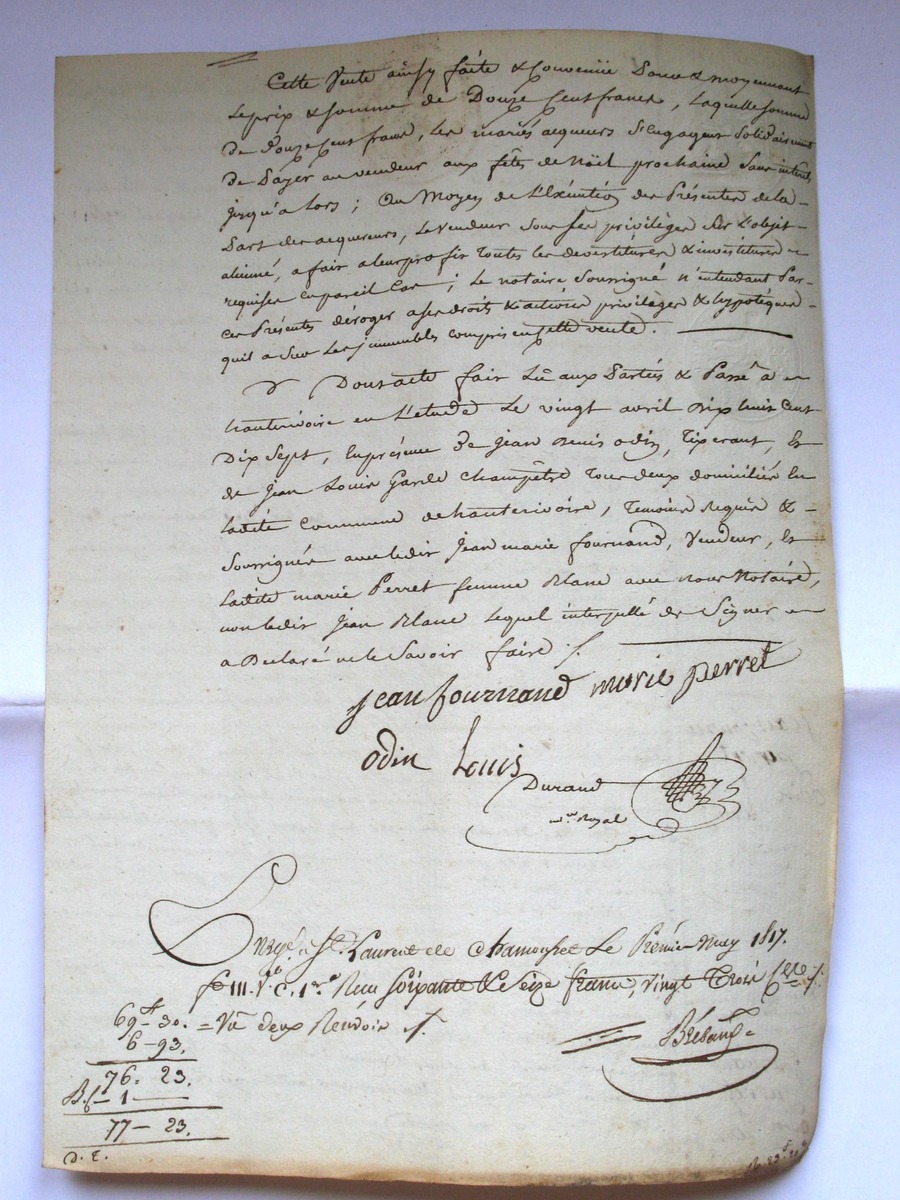 Cette Vente ainsy faite & Convenüe Pour & moyennant
Le prix & Somme de Douze Cent francs, Laquelle Somme
De Douze Cent francs, Les mariés acqueurs S'Engagent Solidairement
De Payer au vendeur aux fêtes de Noël prochaine Sans interêt
jusqu'a Lors; Au Moyen de L'Exécution des Présentes de la
Part des acquereurs, Le vendeur Sous Ses privilèges Sur L'objet
alienné, a fait a leur profit Toutes les devestitures & investitures
requises en pareil Cas; Le notaire Soussigné n'entendant Par
ces Présentes déroger a ses droits & actions privilèges & hypotèques
quil a Sur Les immeubles compris en Cette vente.
Dont acte fait Lû aux Parties & Passé a
hauterivoire en L'etude Le vingt avril Dix huit Cent
Dix Sept, En présence De Jean Denis odin, Tixerant, Et
de Jean Louis Garde Champêtre Tous deux domiciliés En
Ladite Commune de hauterivoire, Temoins Requis &
Soussignés avec ledit Jean marie fournand, Vendeur, Et
Ladite marie Perret femme Blanc avec nous Notaire,
non ledit Jean Blanc Lequel interpellé de Signer
a Declaré ne le Savoir faire /.
jean fournand marie perret
odin Louis
Durand
nre Royal
Enrgé. a St. Laurent de Chamousset Le Prémier May 1817.
fo 111. Vo C. 1re. Reçu Soixante & Seize francs, Vingt Trois Cmes /.
69f-30. = Vû deux Renvois /.
6-93.
76-23.
B.f-1
77-23.
D. E.